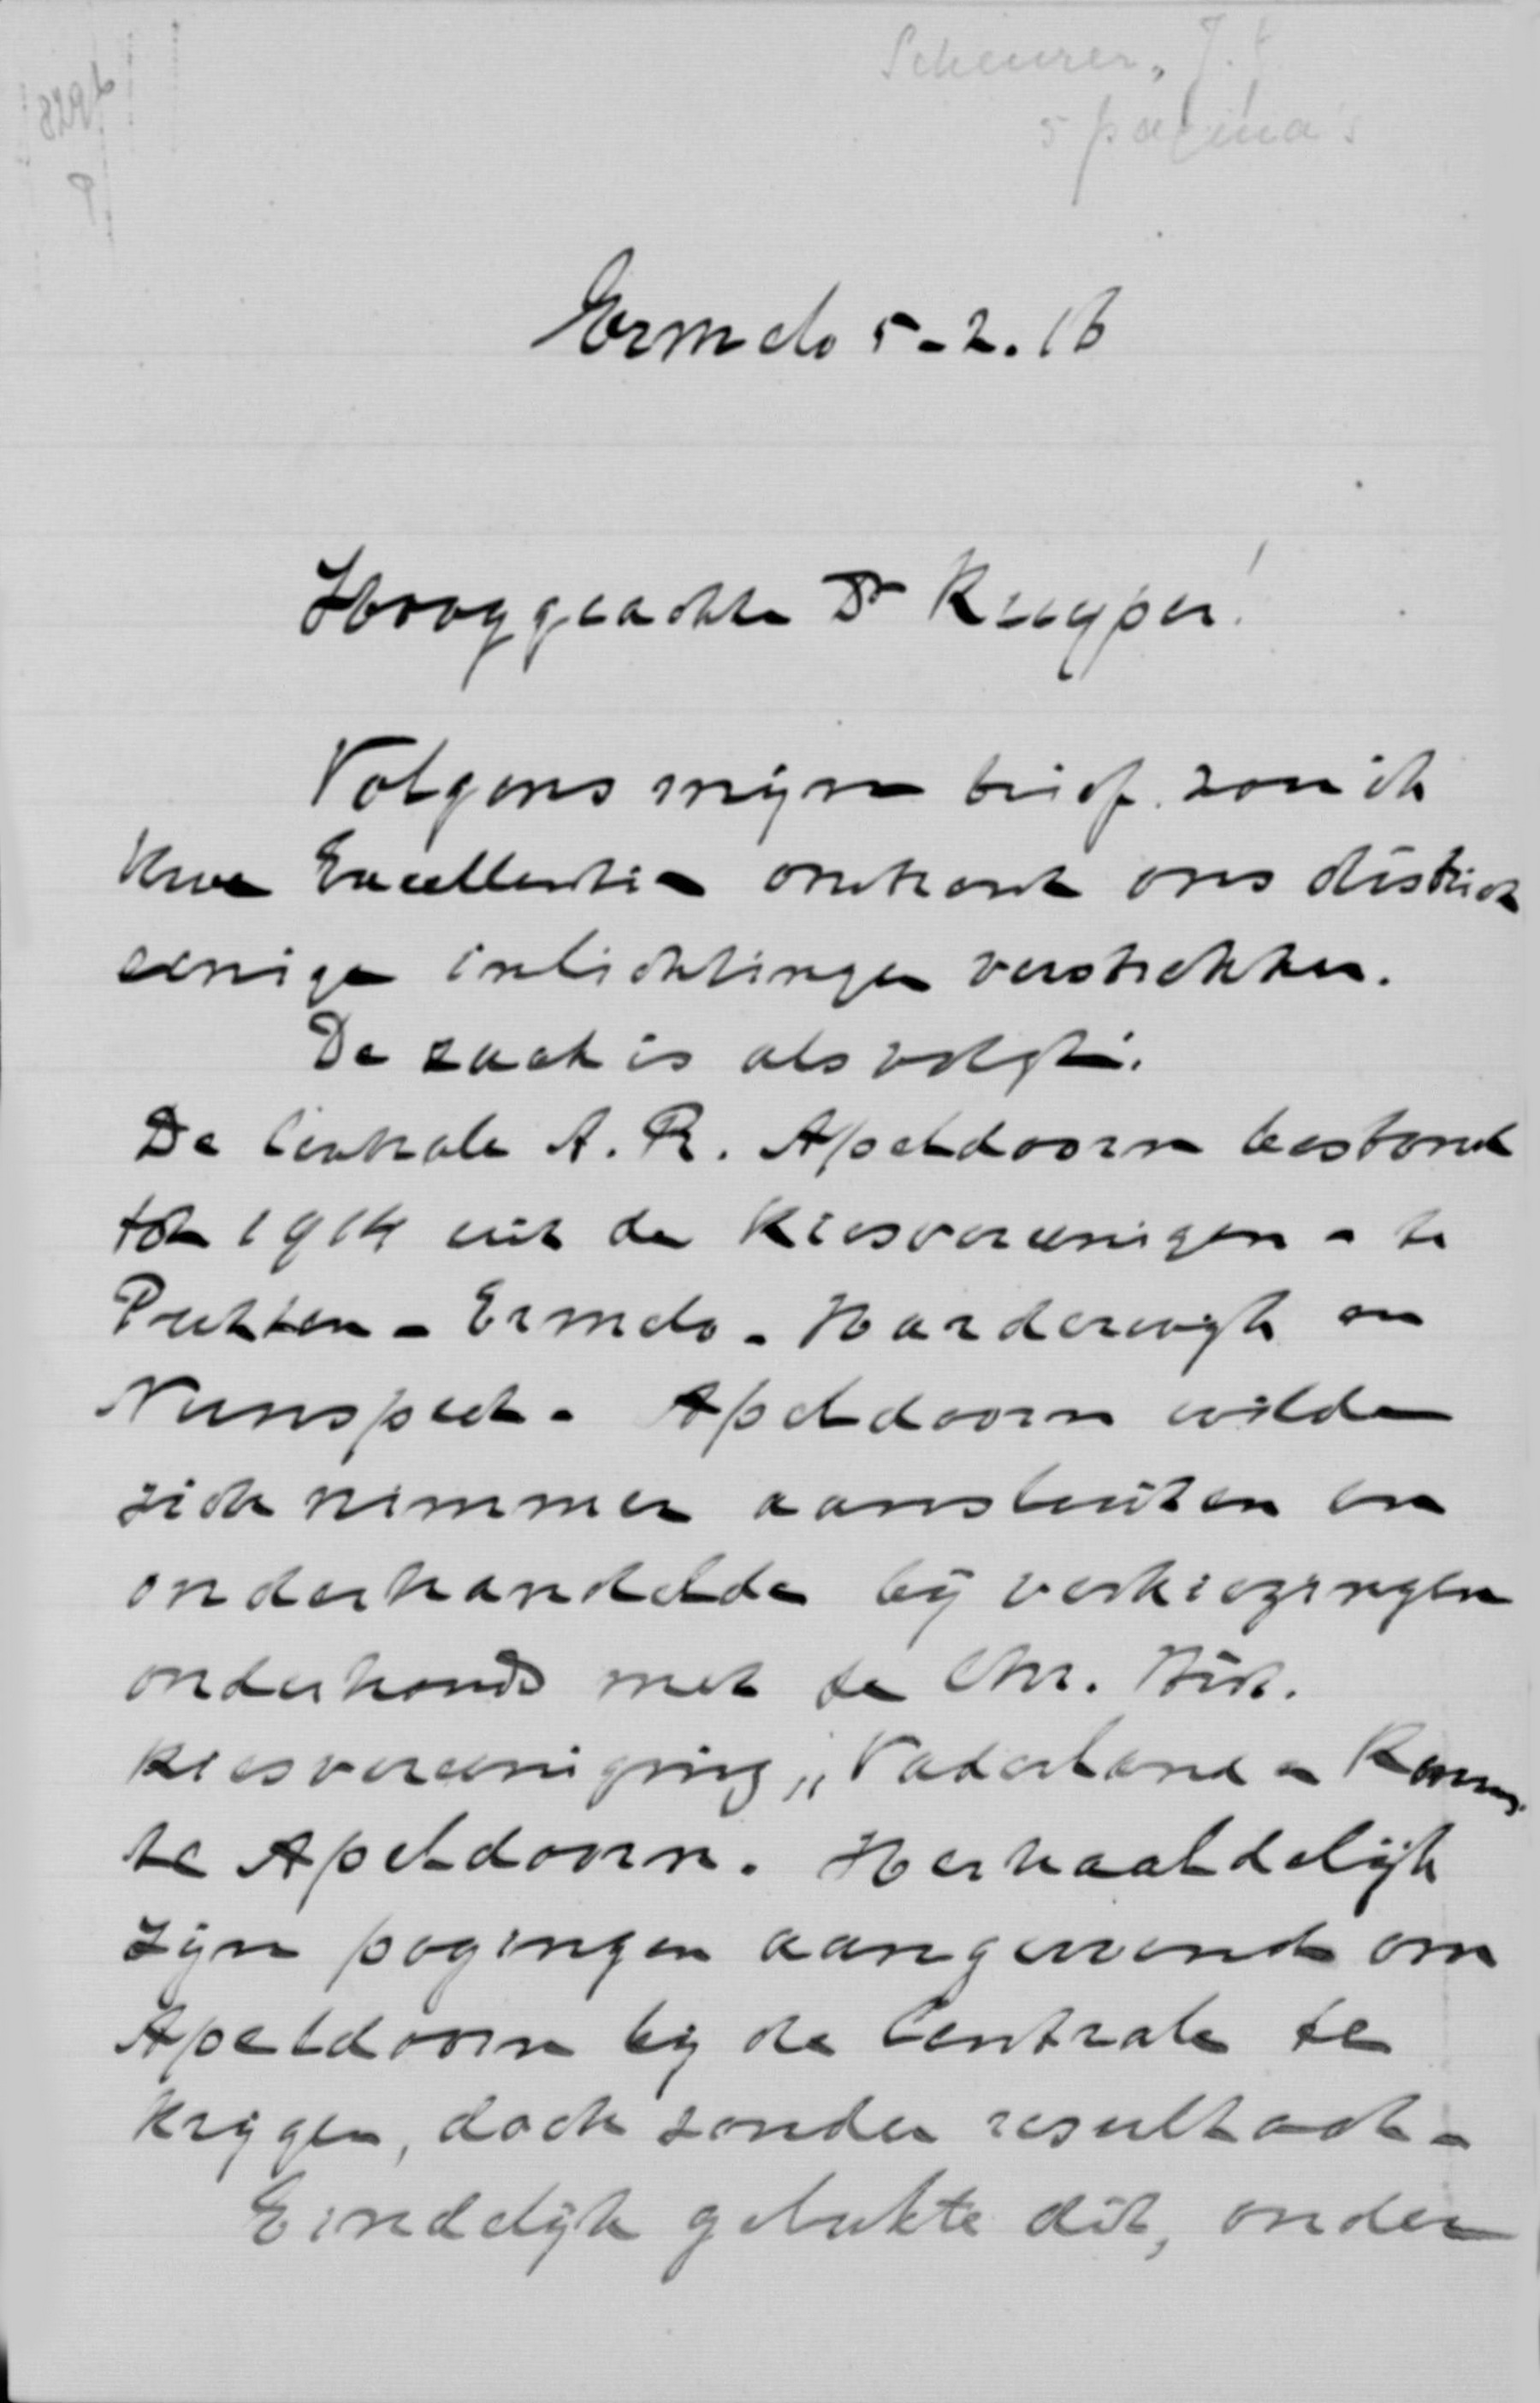 Scheurer, J.
5 pagina's
Ermelo 5-2.16
Hooggeachte Dr Kuyper!
Volgens mijn brief zou ik
Uwe Excellentie omtrent ons district
eenige inlichtingen verstrekken.
De zaak is als volgt:
De Centrale A. R. Apeldoorn bestond
tot 1914 uit de Kiesvereenigen - te
Putten - Ermelo - Harderwijk en
Nunspeet. Apeldoorn wilde
zich nimmer aansluiten en
onderhandelde bij verkiezingen
onderhands met de Chr. Hist.
Kiesvereeniging „Vaderland en Koning"
te Apeldoorn. Herhaaldelijk
zijn pogingen aangewend om
Apeldoorn bij de Centrale te
krijgen, doch zonder resultaat -
Eindelijk gelukte dit, onder